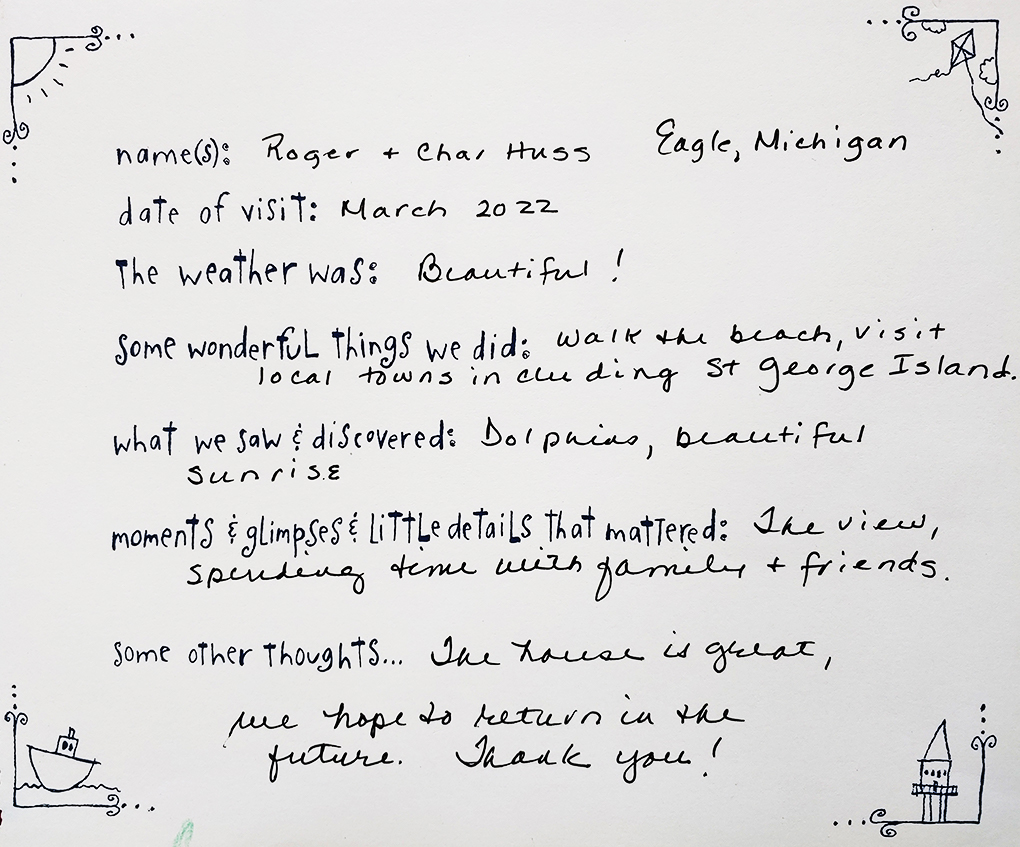 name(s): Roger + Char Huss Eagle, Michigan
date of visit: March 2022
The weather was: Beautiful!
some wonderful things we did: walk the beach, visit
local towns including St George Island.
what we saw & discovered: Dolphins, beautiful
sunrise
moments & glimpses & little details that mattered: The view,
spending time with family + friends.
some other thoughts... The house is great,
we hope to return in the
future. Thank you!